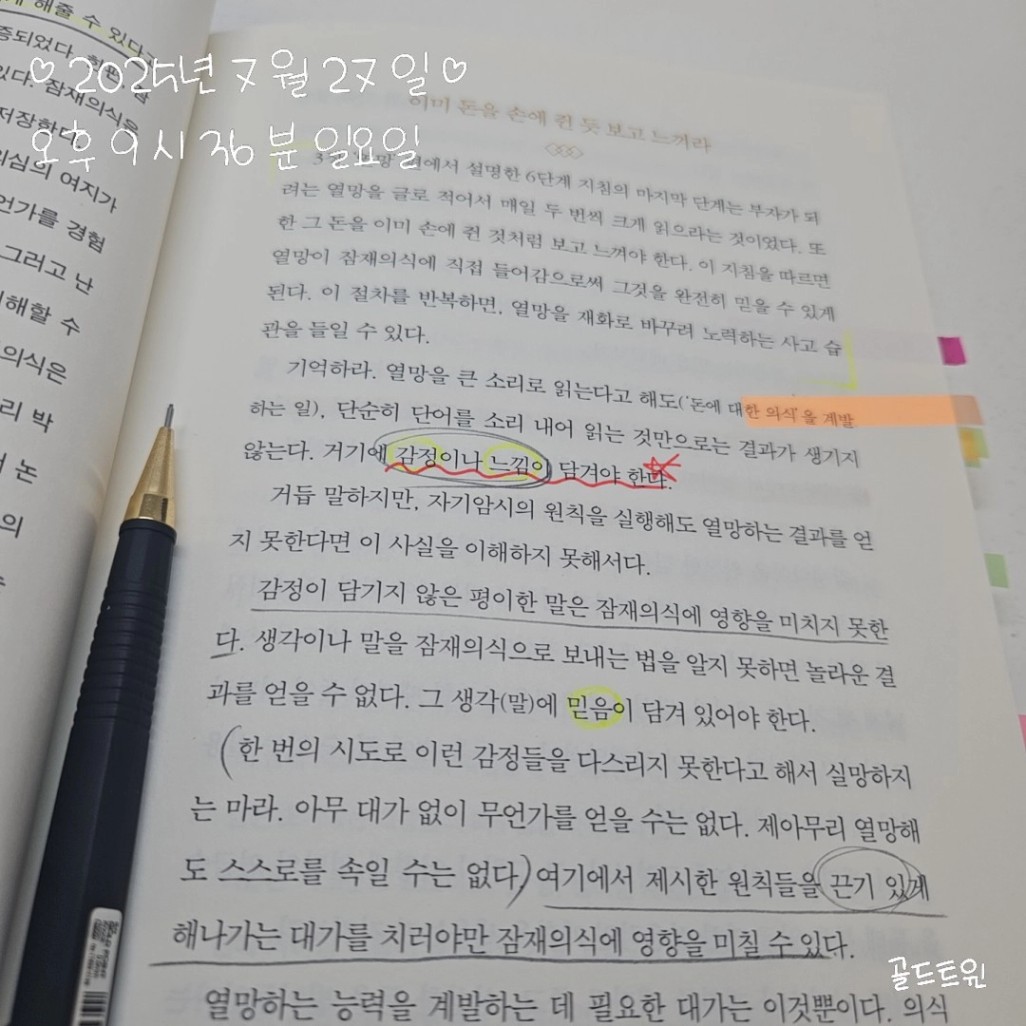 해줄 수 있다
증되었다.
있다. 잠재의식은
저장한다.
의심의 여지가
언가를 경험
그러고 난
이해할 수
의식은
리 박
논
의
♡2025년 7월 27일♡
오후 9시 36분 일요일
이미 돈을 손에 쥔 듯 보고 느껴라
편에서 설명한 6단계 지침의 마지막 단계는 부자가 되
려는 열망을 글로 적어서 매일 두 번씩 크게 읽으라는 것이었다. 또
한 그 돈을 이미 손에 쥔 것처럼 보고 느껴야 한다. 이 지침을 따르면
열망이 잠재의식에 직접 들어감으로써 그것을 완전히 믿을 수 있게
된다. 이 절차를 반복하면, 열망을 재화로 바꾸려 노력하는 사고 습
관을 들일 수 있다.
기억하라. 열망을 큰 소리로 읽는다고 해도('돈에 대한 의식'을 계발
하는 일), 단순히 단어를 소리 내어 읽는 것만으로는 결과가 생기지
않는다. 거기에 감정이나 느낌이 담겨야 한다.
거듭 말하지만, 자기암시의 원칙을 실행해도 열망하는 결과를 얻
지 못한다면 이 사실을 이해하지 못해서다.
감정이 담기지 않은 평이한 말은 잠재의식에 영향을 미치지 못한
다. 생각이나 말을 잠재의식으로 보내는 법을 알지 못하면 놀라운 결
과를 얻을 수 없다. 그 생각(말)에 믿음이 담겨 있어야 한다.
(한 번의 시도로 이런 감정들을 다스리지 못한다고 해서 실망하지
는 마라. 아무 대가 없이 무언가를 얻을 수는 없다. 제아무리 열망해
도 스스로를 속일 수는 없다.) 여기에서 제시한 원칙들을 끈기 있게
해나가는 대가를 치러야만 잠재의식에 영향을 미칠 수 있다.
열망하는 능력을 계발하는 데 필요한 대가는 이것뿐이다. 의식
골드트윈